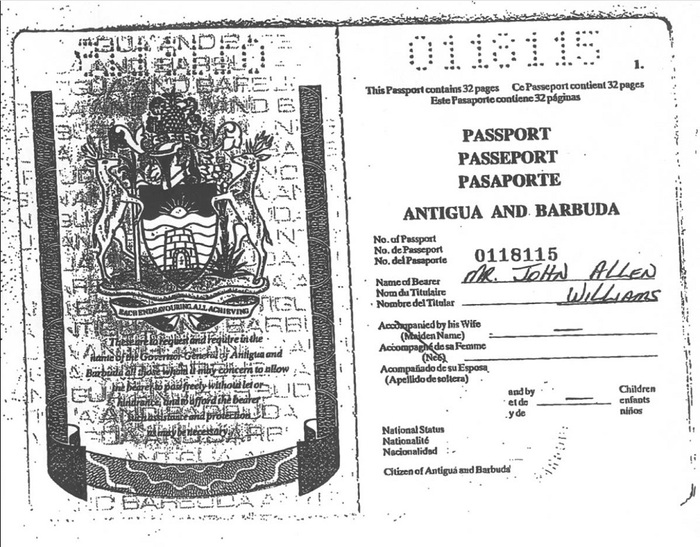 EACH ENDEAVOURING, ALL ACHIEVING
These are to request and require in the
name of the Governor-General of Antigua and
Barbuda all those whom it may concern to allow
the bearer to pass freely without let or
hindrance, and to afford the bearer
such assistance and protection
as may be necessary.
0118115
1.
This Passport contains 32 pages Ce Passeport contient 32 pages
Este Pasaporte contiene 32 páginas
PASSPORT
PASSEPORT
PASAPORTE
ANTIGUA AND BARBUDA
No. of Passport
No. de Passeport
No. del Pasaporte
0118115
Name of Bearer
Nom du Titulaire
Nombre del Titular
MR. JOHN ALLEN
WILLIAMS
Accompanied by his Wife
(Maiden Name)
Accompagné de sa Femme
(Née)
Acompañado de su Esposa
(Apellido de soltera)
and by Children
et de enfants
y de niños
National Status
Nationalité
Nacionalidad
Citizen of Antigua and Barbuda